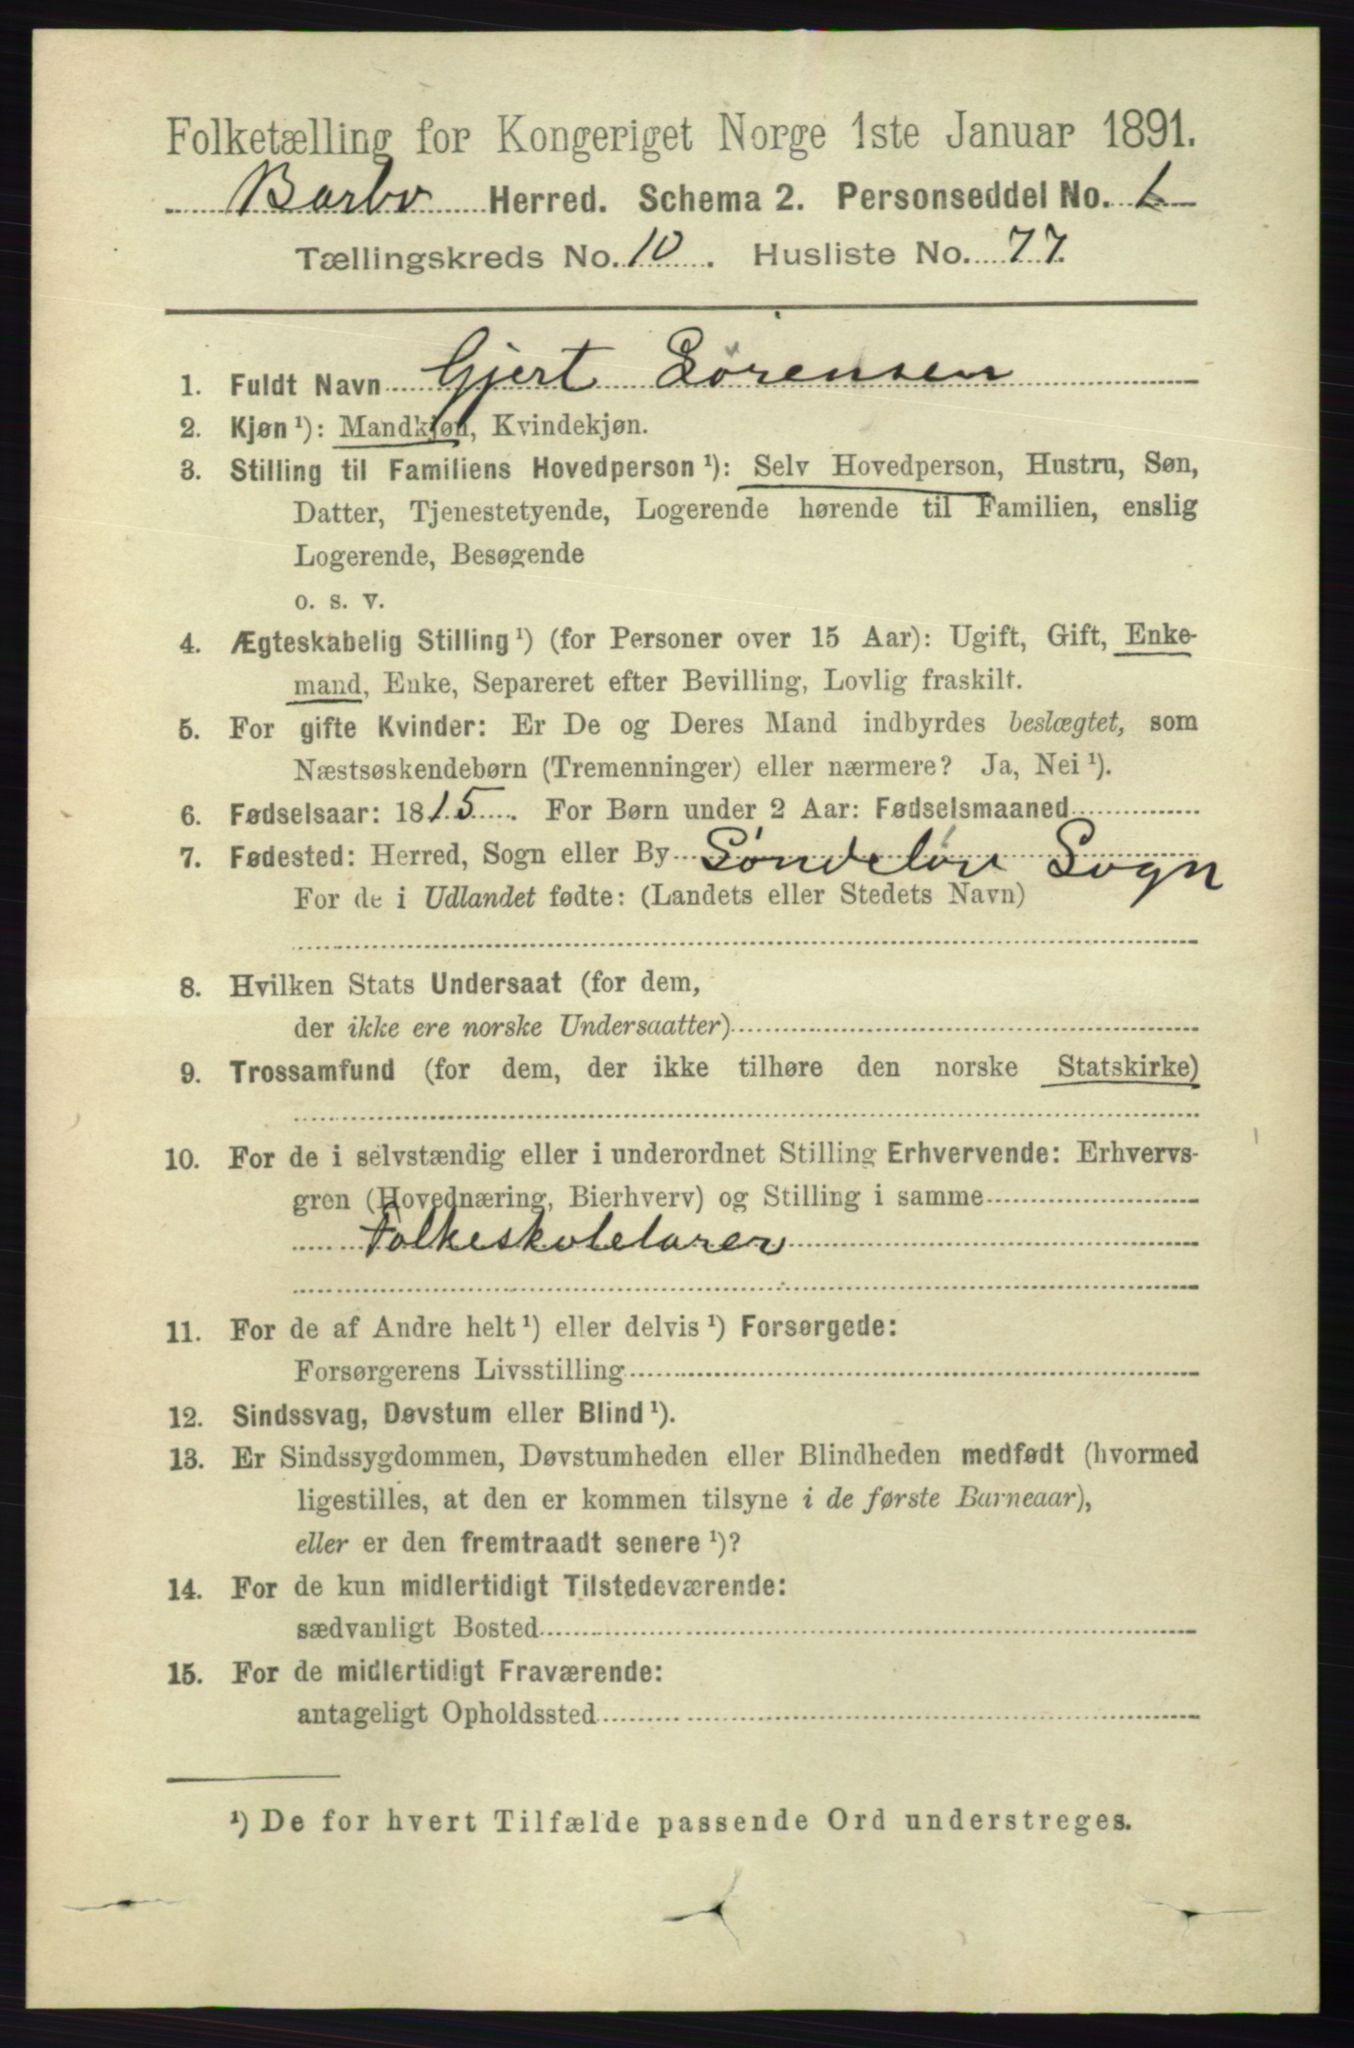 Folketælling for Kongeriget Norge 1ste Januar 1891.
Barbo Herred. Schema 2. Personseddel No.
Tællingskreds No. 10. Husliste No. 77.
1. Fuldt Navn Gjert Sørensen
2. Kjøn ¹): Mandkjøn, Kvindekjøn.
3. Stilling til Familiens Hovedperson ¹): Selv Hovedperson, Hustru, Søn,
Datter, Tjenestetyende, Logerende hørende til Familien, enslig
Logerende, Besøgende
o. s. v.
4. Ægteskabelig Stilling ¹) (for Personer over 15 Aar): Ugift, Gift, Enke-
mand, Enke, Separeret efter Bevilling, Lovlig fraskilt.
5. For gifte Kvinder: Er De og Deres Mand indbyrdes beslægtet, som
Næstsøskendebørn (Tremenninger) eller nærmere? Ja, Nei ¹).
6. Fødselsaar: 1815. For Børn under 2 Aar: Fødselsmaaned
7. Fødested: Herred, Sogn eller By Søndeløv Sogn
For de i Udlandet fødte: (Landets eller Stedets Navn)
8. Hvilken Stats Undersaat (for dem,
der ikke ere norske Undersaatter)
9. Trossamfund (for dem, der ikke tilhøre den norske Statskirke)
10. For de i selvstændig eller i underordnet Stilling Erhvervende: Erhvervs-
gren (Hovednæring, Bierhverv) og Stilling i samme
Folkeskolelærer
11. For de af Andre helt ¹) eller delvis ¹) Forsørgede:
Forsørgerens Livsstilling
12. Sindssvag, Døvstum eller Blind ¹).
13. Er Sindssygdommen, Døvstumheden eller Blindheden medfødt (hvormed
ligestilles, at den er kommen tilsyne i de første Barneaar),
eller er den fremtraadt senere ¹)?
14. For de kun midlertidigt Tilstedeværende:
sædvanligt Bosted
15. For de midlertidigt Fraværende:
antageligt Opholdssted
¹) De for hvert Tilfælde passende Ord understreges.